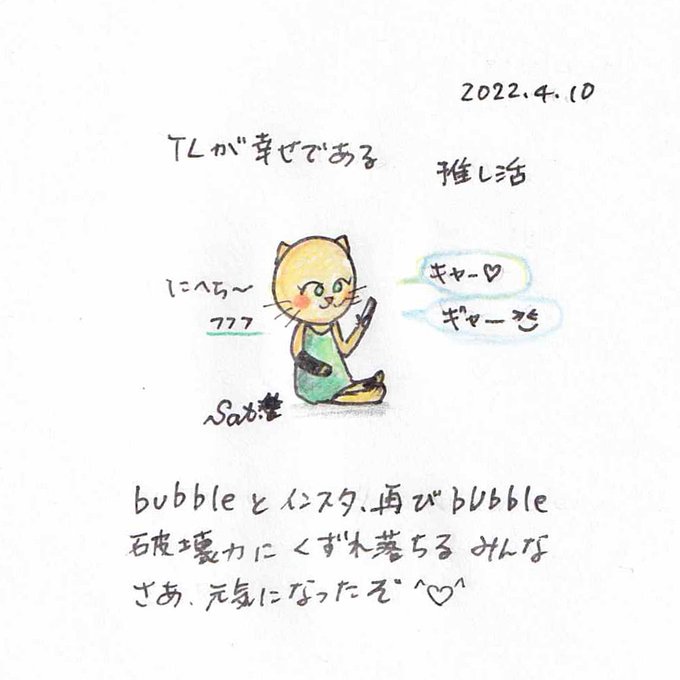 2022.4.10
TLが幸せである
推し活
にへら〜
フフフ
キャー♡
ギャー
bubbleとインスタ、再びbubble
破壊力にくずれ落ちるみんな
さあ、元気になったぞ^♡^